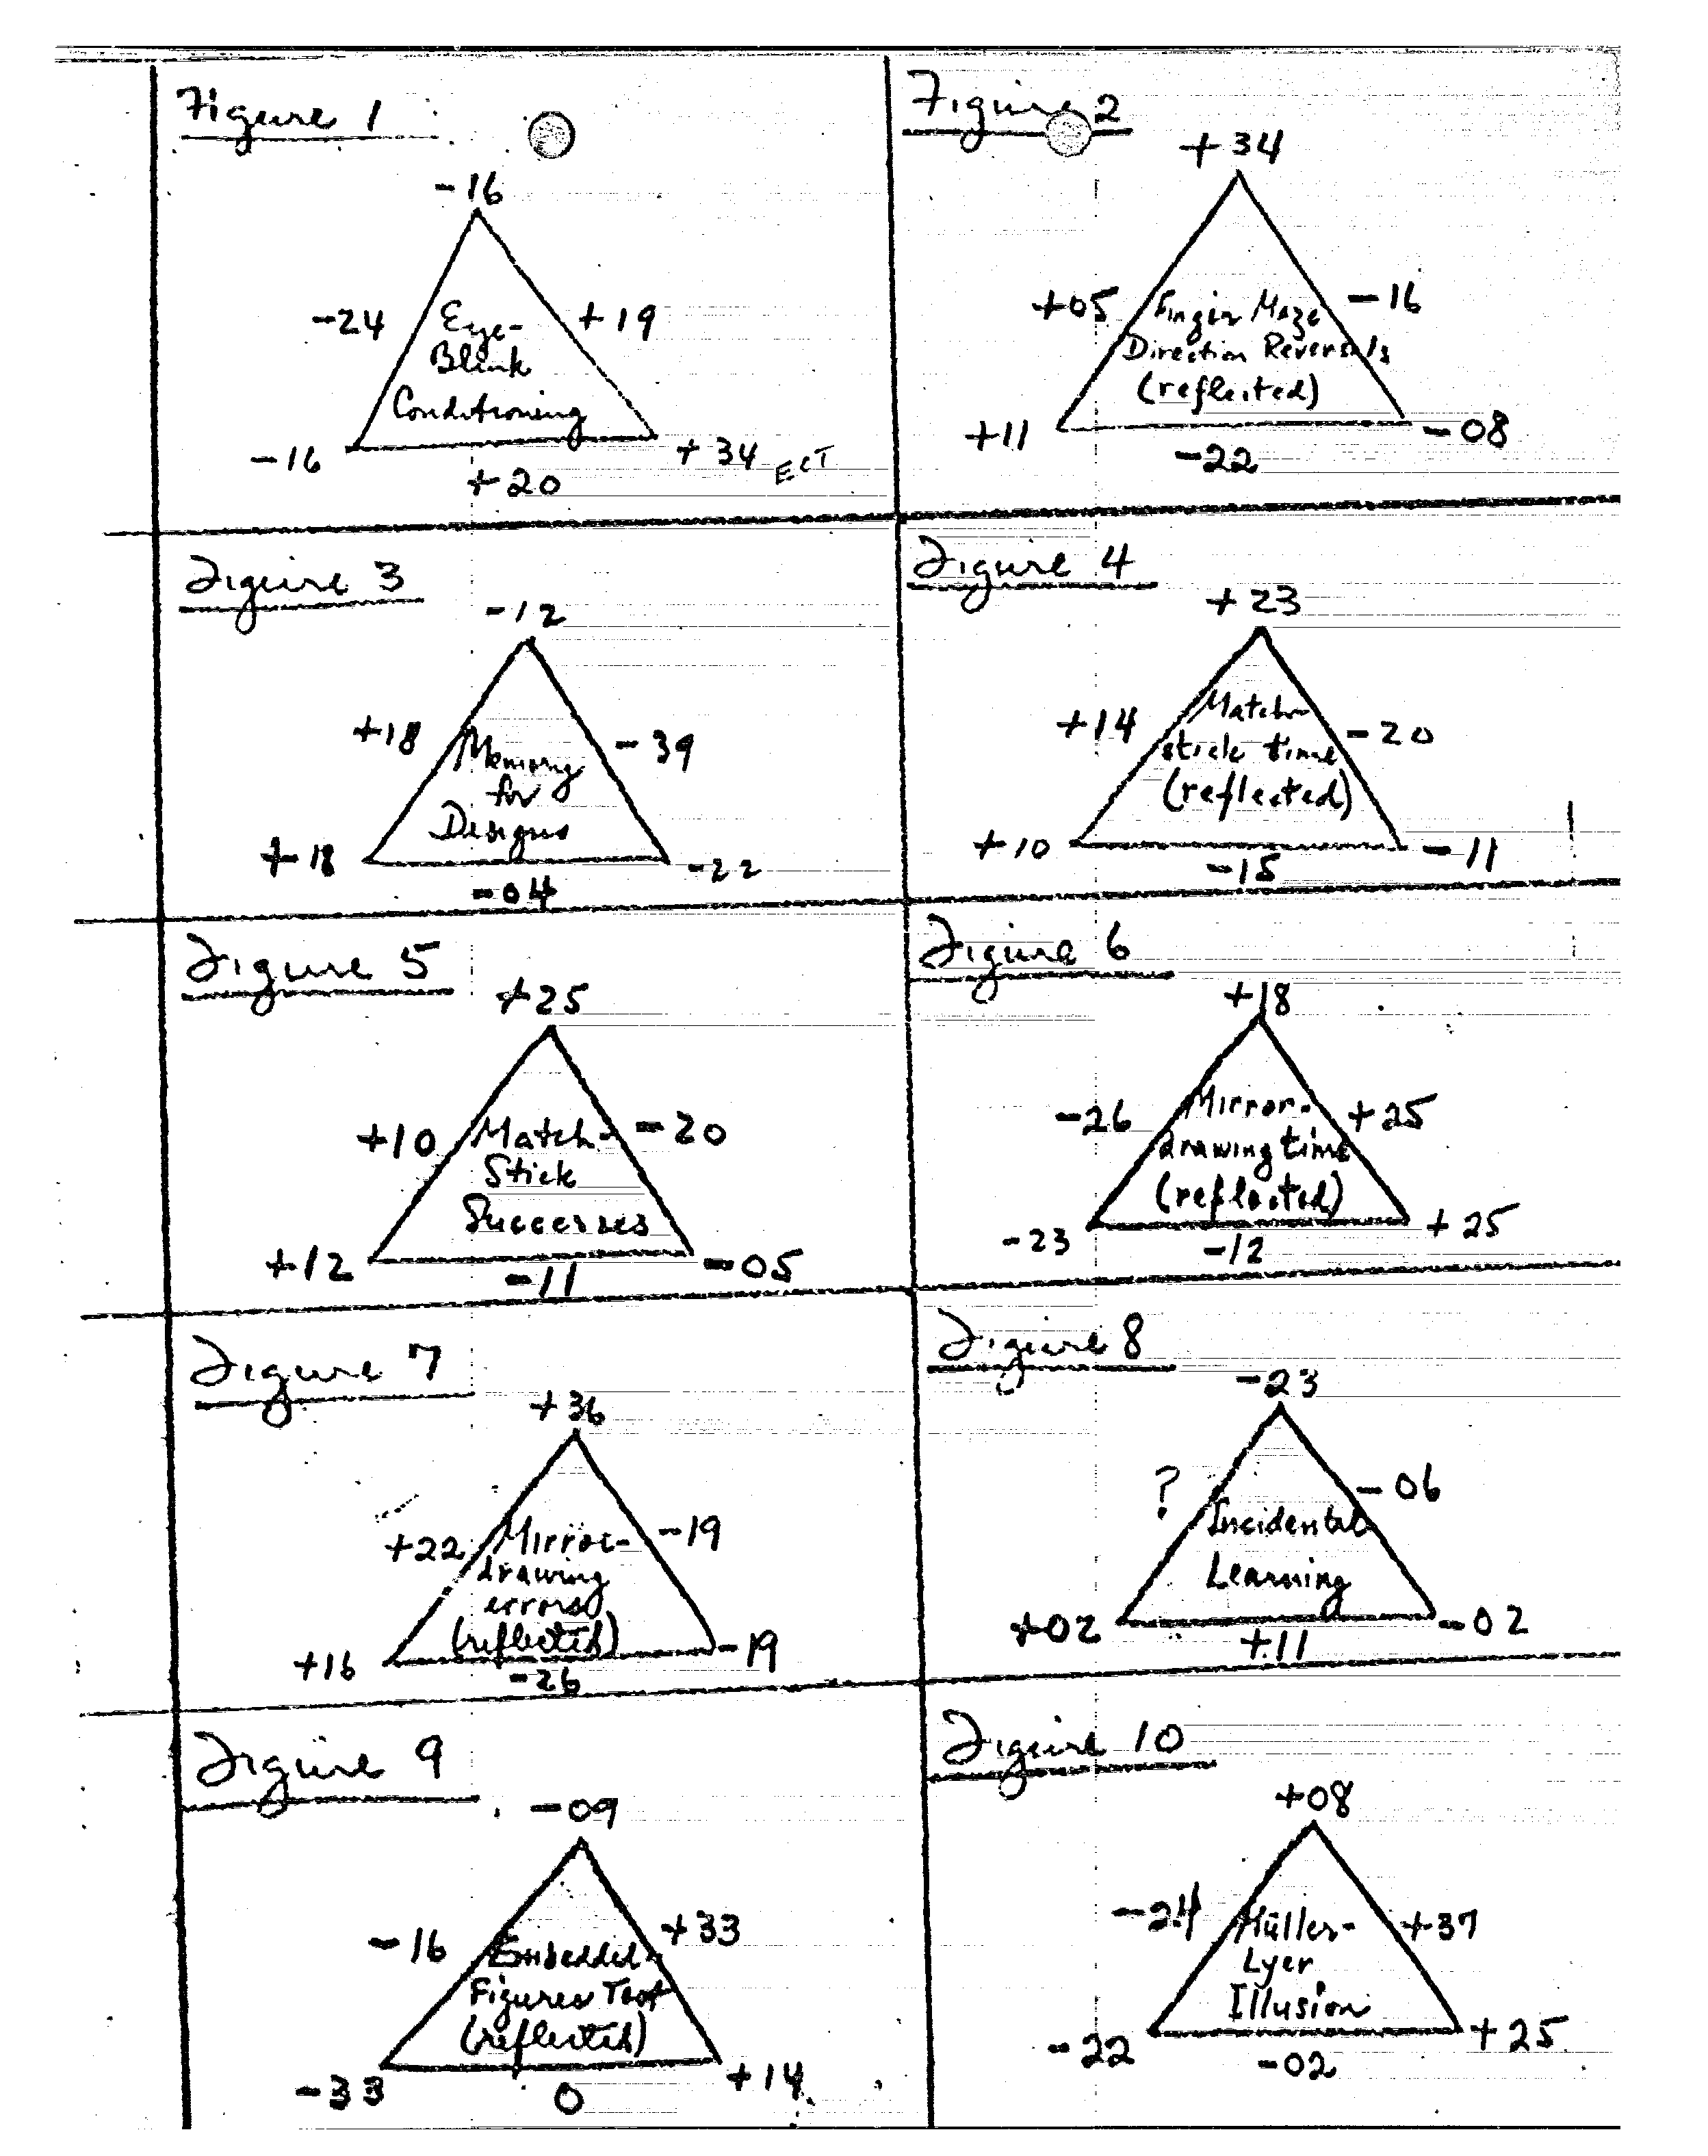 Figure 1
-16
-24
+19
Eye-
Blink
Conditioning
-16
+34 ECT
+20
Figure 2
+34
+05
-16
Finger Maze
Direction Reversals
(reflected)
+11
-08
-22
Figure 3
-12
+18
-39
Memory
for
Designs
+18
-22
-04
Figure 4
+23
+14
-20
Match-
stick time
(reflected)
+10
-11
-15
Figure 5
+25
+10
-20
Match-
Stick
Successes
+12
-05
-11
Figure 6
+18
-26
+25
Mirror-
drawing time
(reflected)
-23
+25
-12
Figure 7
+36
+22
-19
Mirror-
drawing
errors
(reflected)
+16
-19
-26
Figure 8
-23
?
-06
Incidental
Learning
+02
-02
+11
Figure 9
-09
-16
+33
Embedded-
Figures Test
(reflected)
-33
+14
0
Figure 10
+08
-24
+37
Müller-
Lyer
Illusion
-22
+25
-02